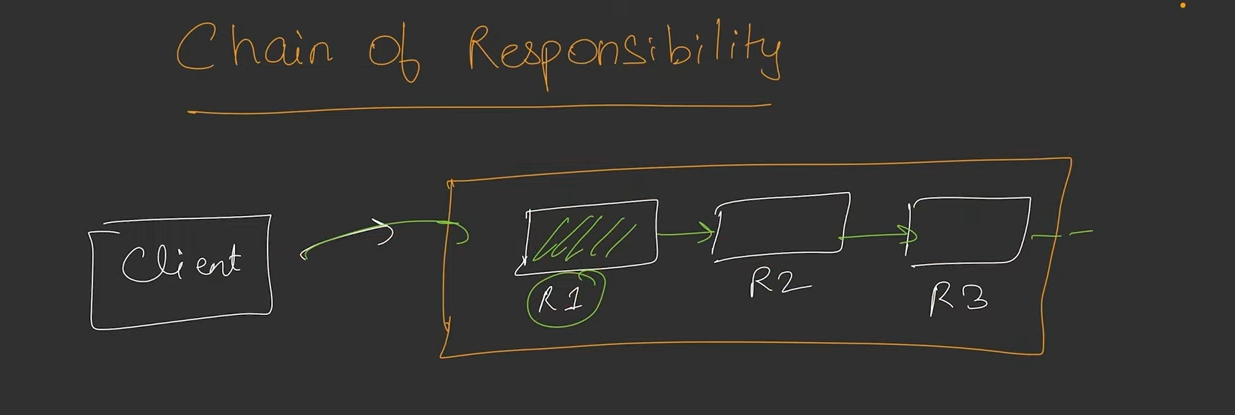 Chain of Responsibility
Client
R1
R2
R3